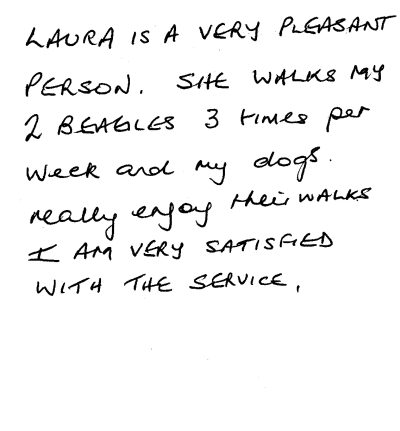 LAURA IS A VERY PLEASANT
PERSON. SHE WALKS MY
2 BEAGLES 3 times per
week and my dogs.
really enjoy their WALKS
I AM VERY SATISFIED
WITH THE SERVICE.